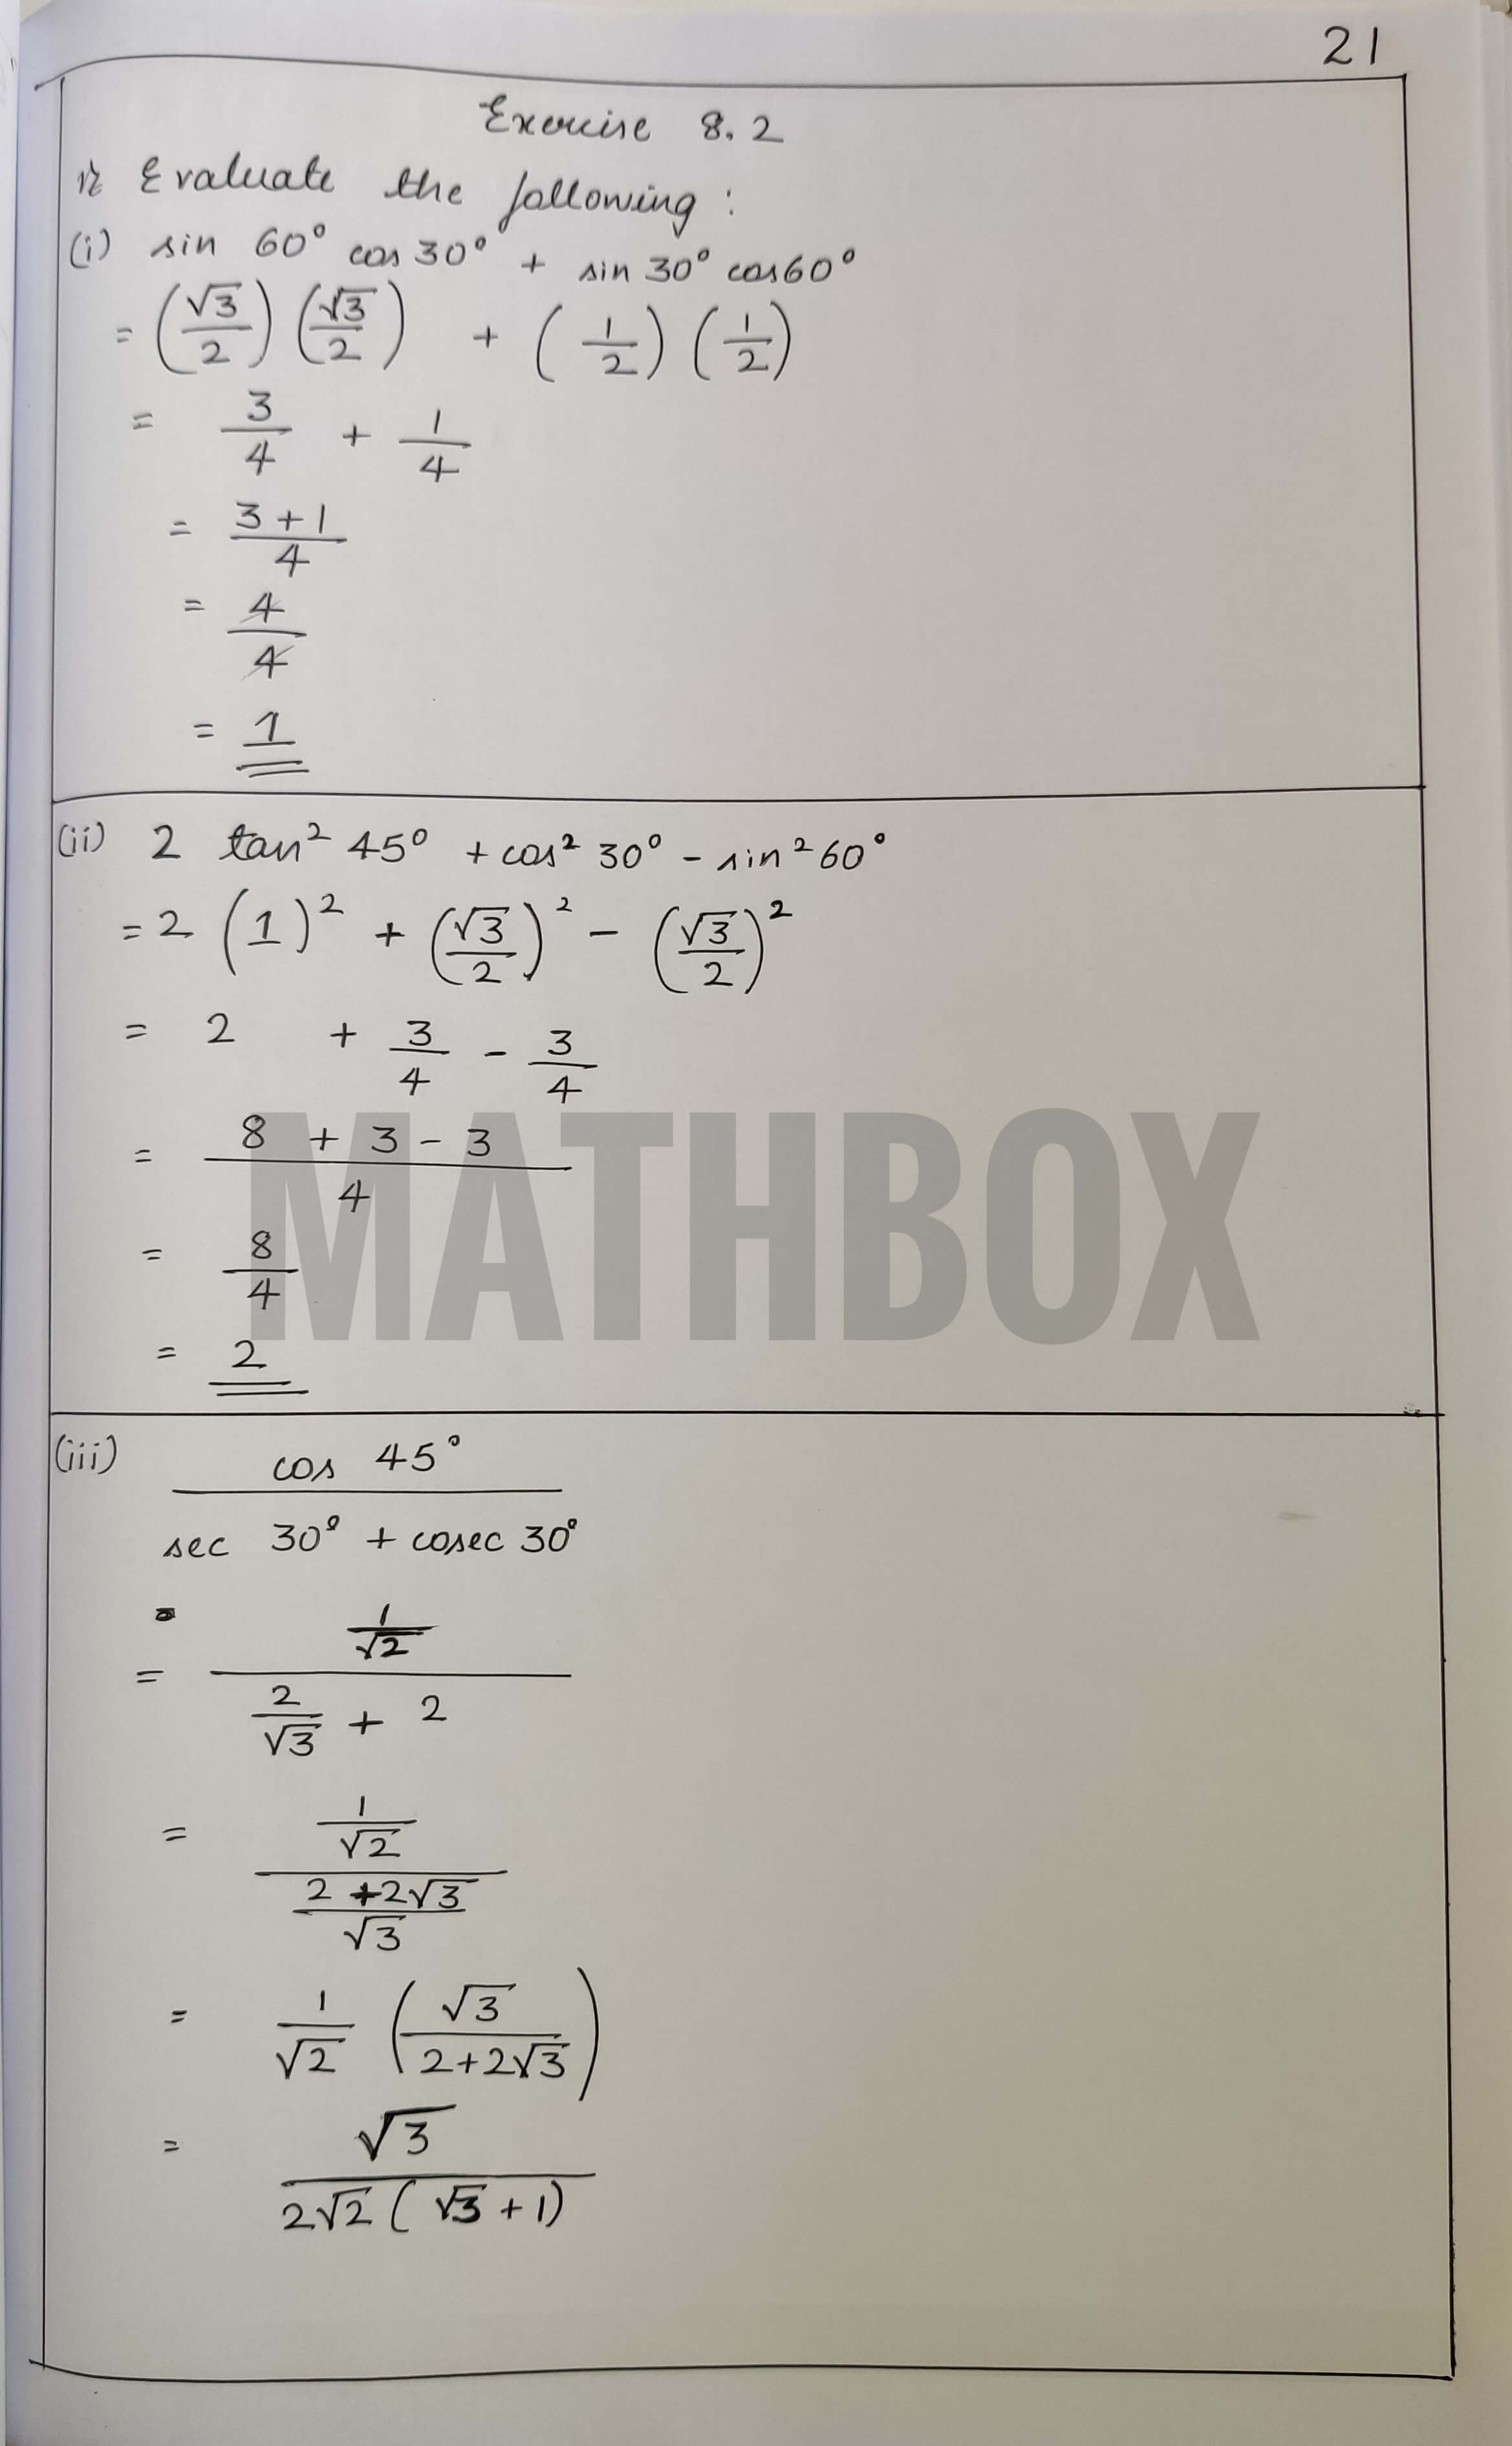 21
Exercise 8.2
1) Evaluate the following :
(i) sin 60° cos 30° + sin 30° cos 60°
= (√3/2) (√3/2) + (1/2) (1/2)
= 3/4 + 1/4
= 3+1/4
= 4/4
= 1
(ii) 2 tan² 45° + cos² 30° - sin² 60°
= 2 (1)² + (√3/2)² - (√3/2)²
= 2 + 3/4 - 3/4
= 8 + 3 - 3/4
= 8/4
= 2
MATHBOX
(iii) cos 45°
sec 30° + cosec 30°
= 1/√2
2/√3 + 2
= 1/√2
2 + 2√3/√3
= 1/√2 (√3/2+2√3)
= √3
2√2 ( √3 + 1)